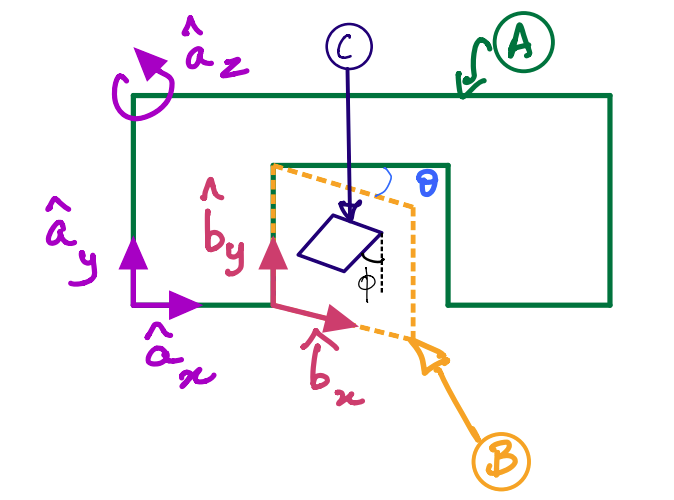 â_z
C
A
θ
â_y
b̂_y
ϕ
â_x
b̂_x
B